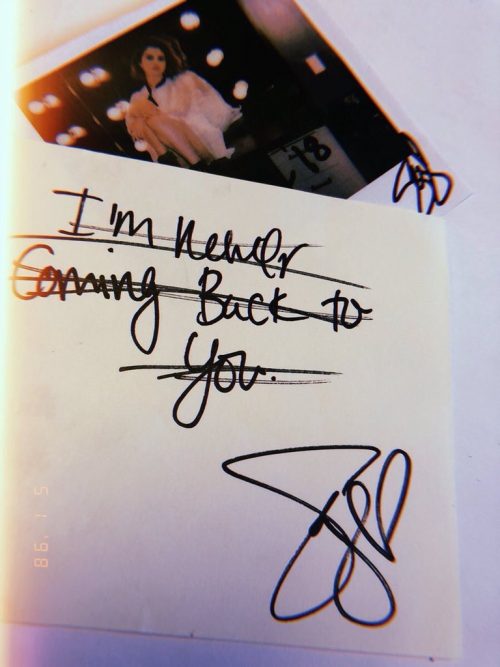 '18
I'm Never
Coming Back to
You.
'98 1 5